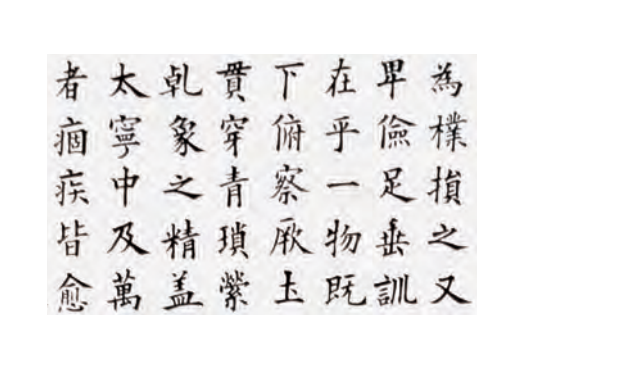 為樸損之又
卑儉足垂訓
在乎一物既
下俯察厥圡
貫穿青瑣縈
乹象之精盖
太寧中及萬
者痼疾皆愈